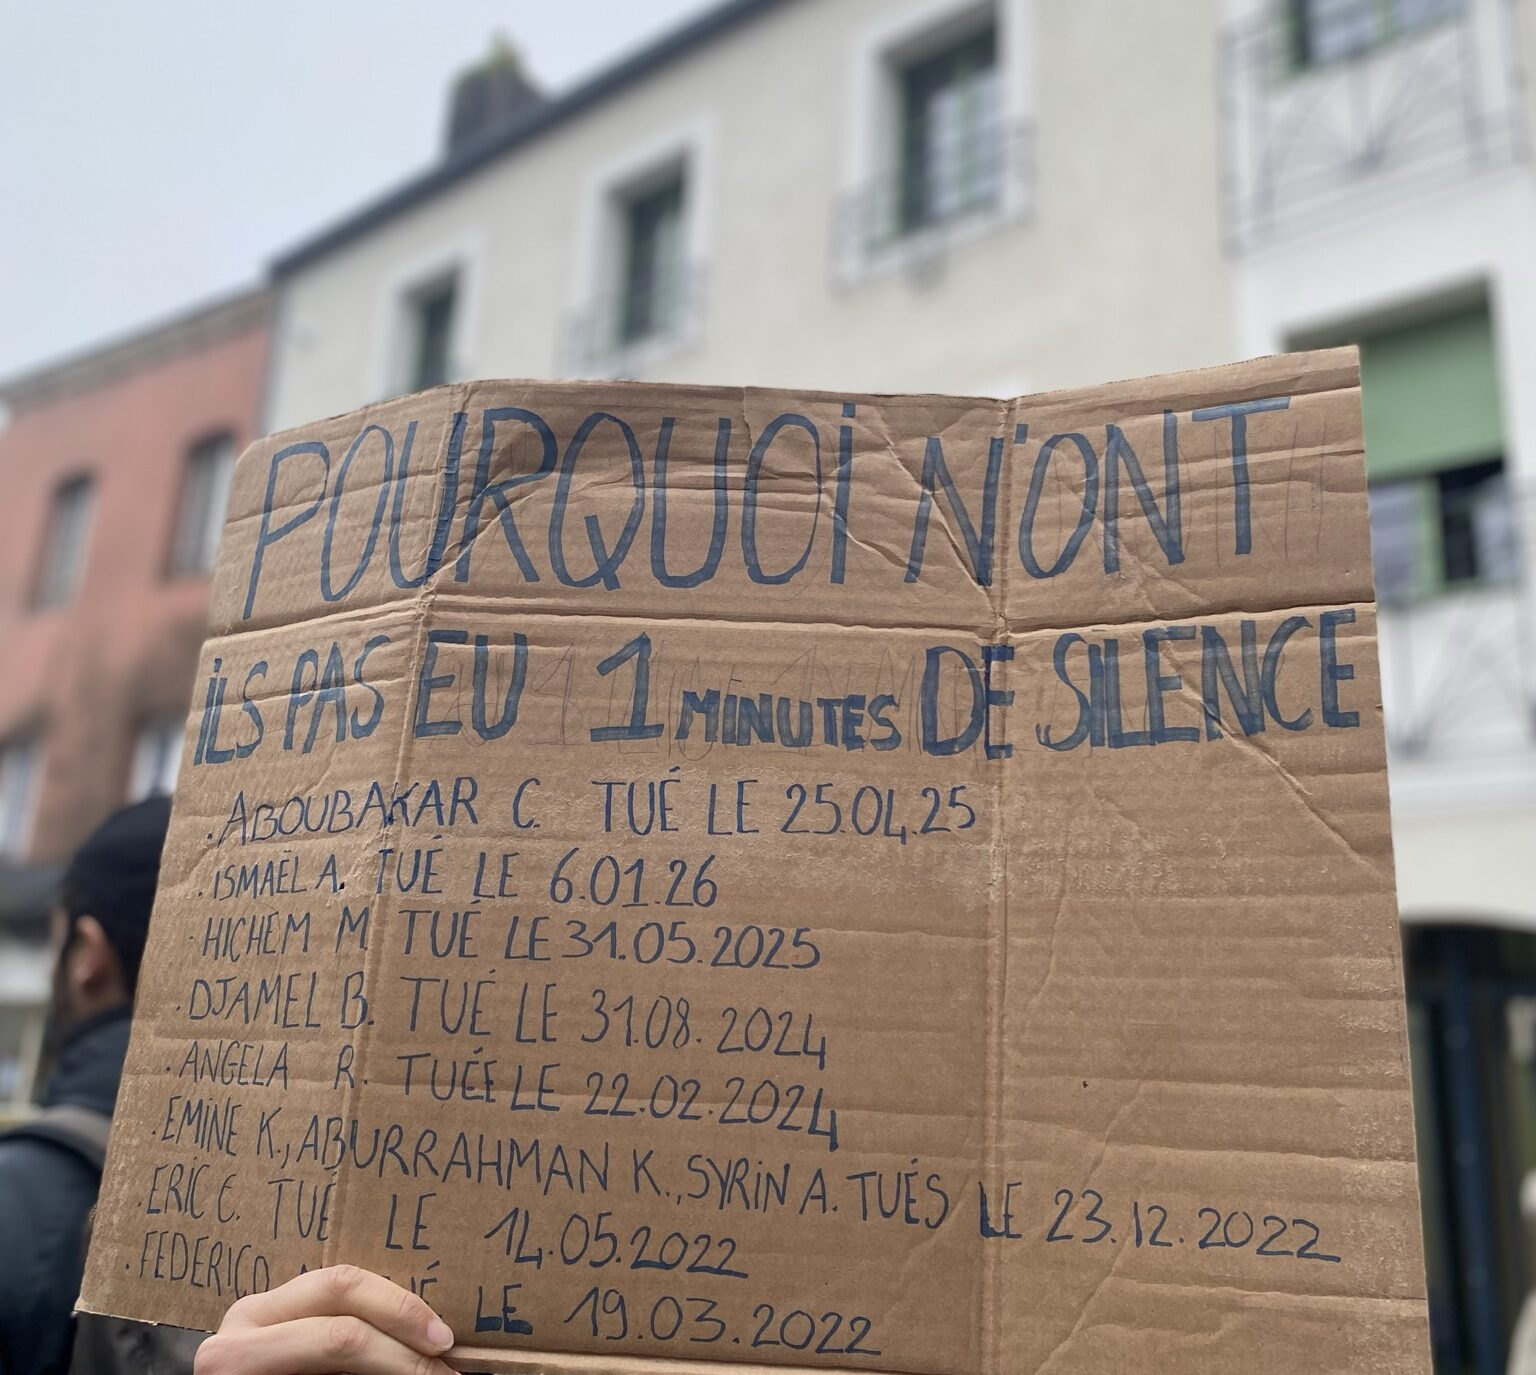 POURQUOI N'ONT
ILS PAS EU 1 MINUTES DE SILENCE
. ABOUBAKAR C. TUÉ LE 25.04.25
. ISMAËL A. TUÉ LE 6.01.26
. HICHEM M. TUÉ LE 31.05.2025
. DJAMEL B. TUÉ LE 31.08.2024
. ANGELA R. TUÉE LE 22.02.2024
. EMINE K., ABURRAHMAN K., SYRIN A. TUÉS LE 23.12.2022
. ERIC C. TUÉ LE 14.05.2022
. FEDERICO LE 19.03.2022